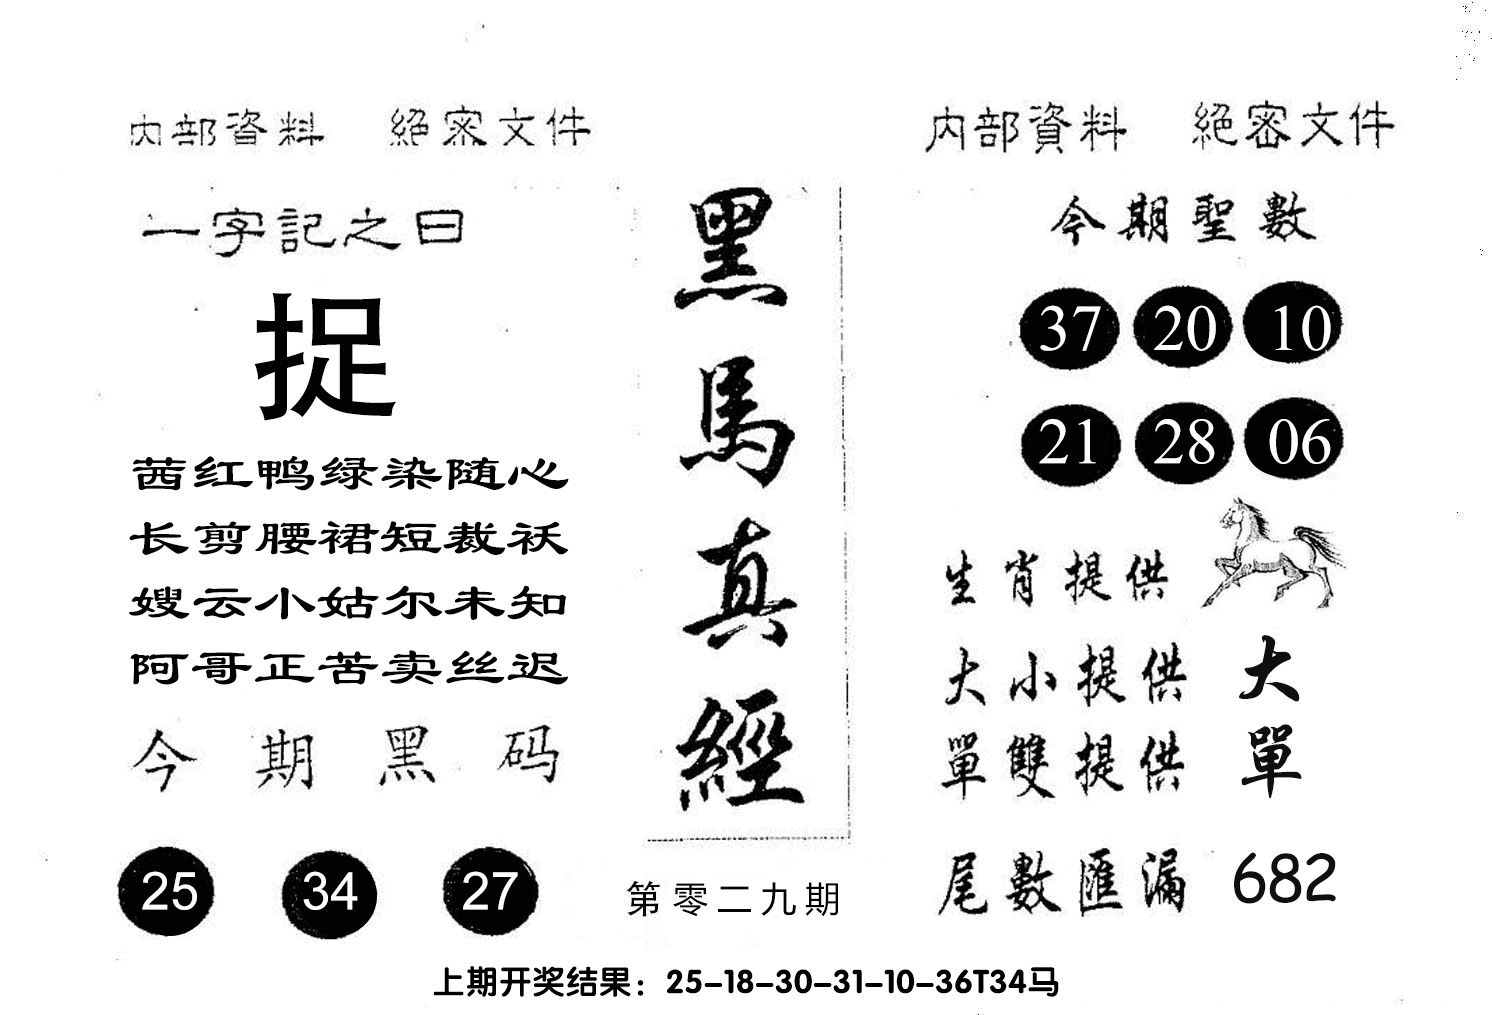 内部資料 絕密文件
一字記之曰
捉
茜红鸭绿染随心
长剪腰裙短裁袄
嫂云小姑尔未知
阿哥正苦卖丝迟
今期黑码
25 34 27
黑馬真經
第零二九期
内部資料 絕密文件
今期聖數
37 20 10
21 28 06
生肖提供
大小提供 大
單雙提供 單
尾數匯漏 682
上期开奖结果：25-18-30-31-10-36T34马